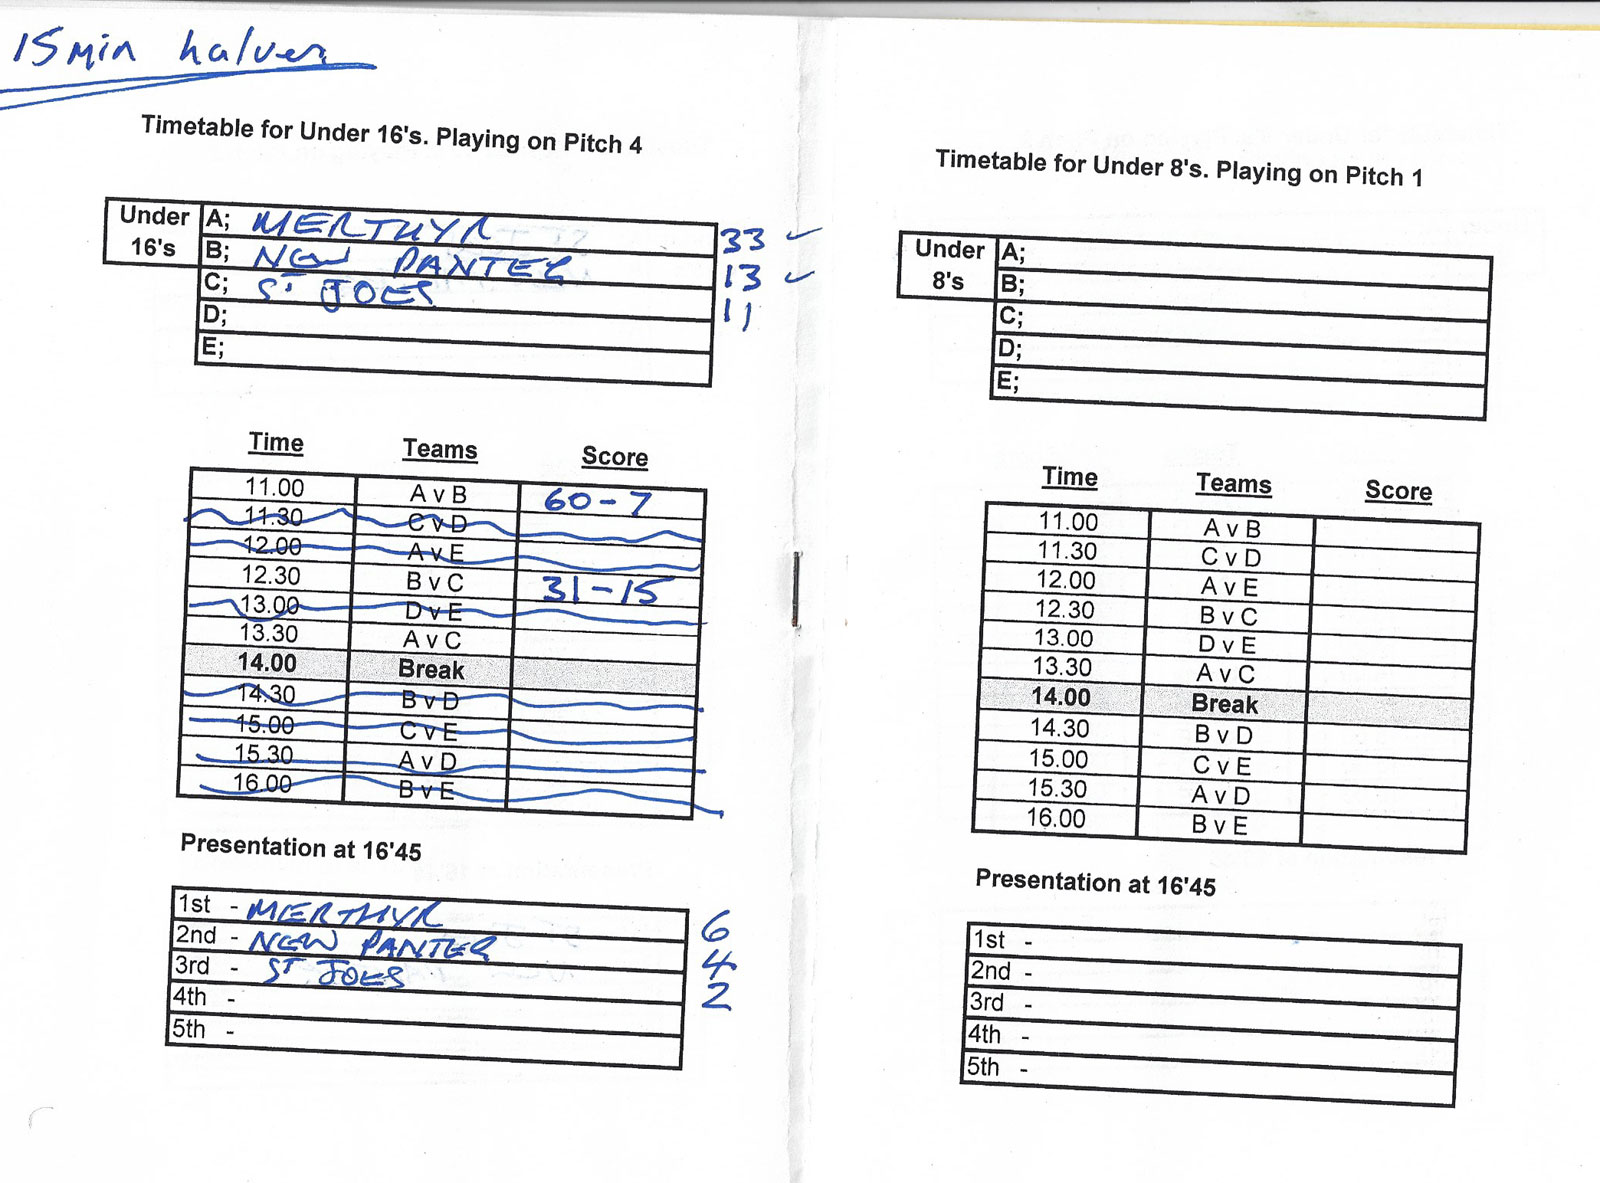 15min halves
Timetable for Under 16's. Playing on Pitch 4
Under 16's
A; MERTHYR 33 ✓
B; NEW PANTEG 13 ✓
C; ST JOES 11
D;
E;
Time Teams Score
11.00 A v B 60-7
11.30 C v D
12.00 A v E
12.30 B v C 31-15
13.00 D v E
13.30 A v C
14.00 Break
14.30 B v D
15.00 C v E
15.30 A v D
16.00 B v E
Presentation at 16'45
1st - MERTHYR 6
2nd - NEW PANTEG 4
3rd - ST JOES 2
4th -
5th -
Timetable for Under 8's. Playing on Pitch 1
Under 8's
A;
B;
C;
D;
E;
Time Teams Score
11.00 A v B
11.30 C v D
12.00 A v E
12.30 B v C
13.00 D v E
13.30 A v C
14.00 Break
14.30 B v D
15.00 C v E
15.30 A v D
16.00 B v E
Presentation at 16'45
1st -
2nd -
3rd -
4th -
5th -